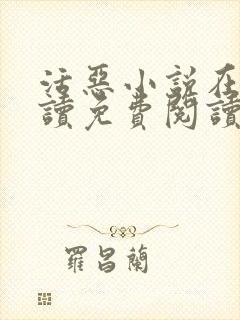 活惡小説在
讀免費閱讀
羅昌蘭